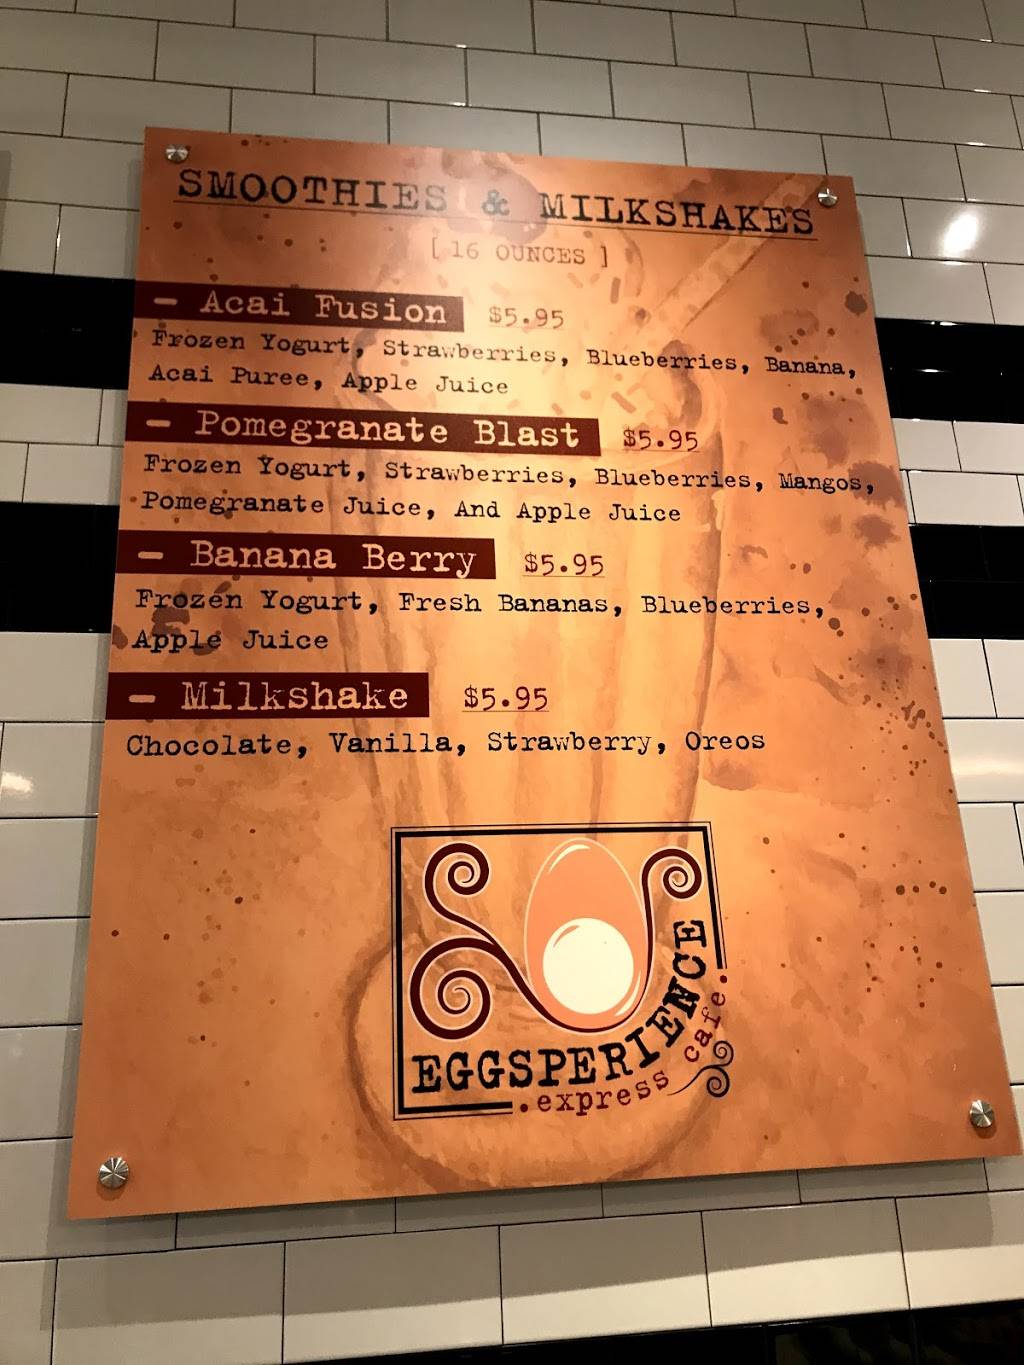 SMOOTHIES & MILKSHAKES
[ 16 OUNCES ]
- Acai Fusion $5.95
Frozen Yogurt, Strawberries, Blueberries, Banana,
Acai Puree, Apple Juice
- Pomegranate Blast $5.95
Frozen Yogurt, Strawberries, Blueberries, Mangos,
Pomegranate Juice, And Apple Juice
- Banana Berry $5.95
Frozen Yogurt, Fresh Bananas, Blueberries,
Apple Juice
- Milkshake $5.95
Chocolate, Vanilla, Strawberry, Oreos
EGGSPERIENCE
.express cafe.